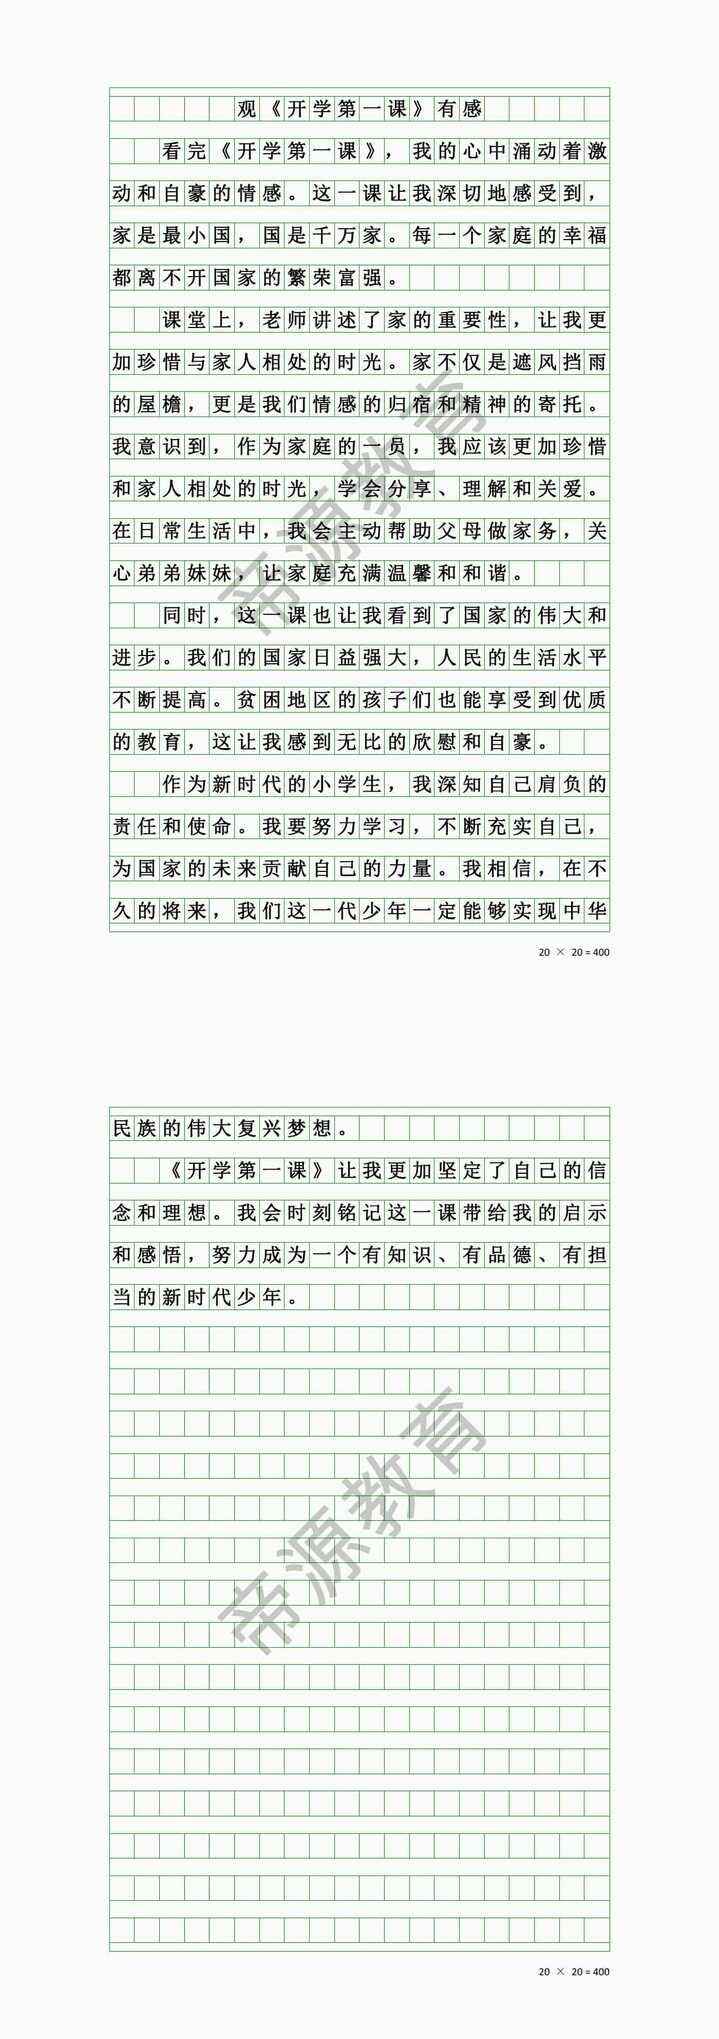 观《开学第一课》有感
看完《开学第一课》，我的心中涌动着激
动和自豪的情感。这一课让我深切地感受到，
家是最小国，国是千万家。每一个家庭的幸福
都离不开国家的繁荣富强。
课堂上，老师讲述了家的重要性，让我更
加珍惜与家人相处的时光。家不仅是遮风挡雨
的屋檐，更是我们情感的归宿和精神的寄托。
我意识到，作为家庭的一员，我应该更加珍惜
和家人相处的时光，学会分享、理解和关爱。
在日常生活中，我会主动帮助父母做家务，关
心弟弟妹妹，让家庭充满温馨和和谐。
同时，这一课也让我看到了国家的伟大和
进步。我们的国家日益强大，人民的生活水平
不断提高。贫困地区的孩子们也能享受到优质
的教育，这让我感到无比的欣慰和自豪。
作为新时代的小学生，我深知自己肩负的
责任和使命。我要努力学习，不断充实自己，
为国家的未来贡献自己的力量。我相信，在不
久的将来，我们这一代少年一定能够实现中华
20 × 20＝400
民族的伟大复兴梦想。
《开学第一课》让我更加坚定了自己的信
念和理想。我会时刻铭记这一课带给我的启示
和感悟，努力成为一个有知识、有品德、有担
当的新时代少年。
20 × 20＝400
帝源教育
帝源教育